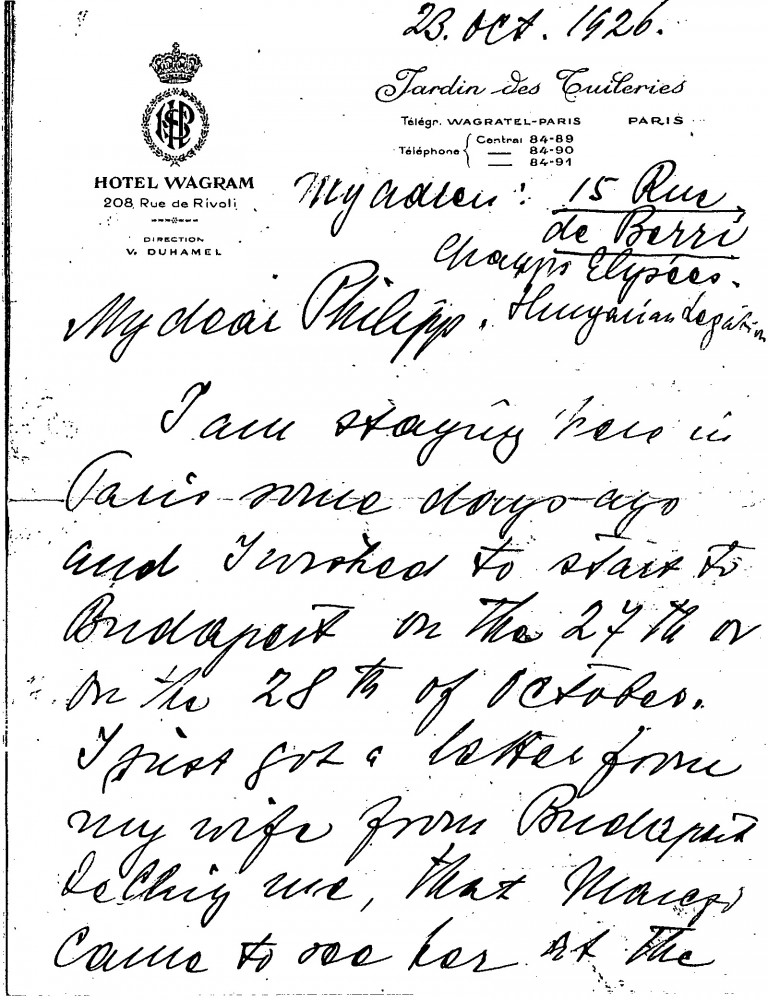 23. Oct. 1926.
Jardin des Tuileries
Télégr. WAGRATEL-PARIS PARIS
Téléphone { Central 84-89
— 84-90
— 84-91
HP
HOTEL WAGRAM
208, Rue de Rivoli
DIRECTION
V. DUHAMEL
My adress: 15 Rue
de Berri
Champs Elysées.
Hungarian Legation
My dear Philipp.
I am staying here in
Paris some days ago
and I wished to start to
Budapest on the 27th or
on the 28th of October.
I just got a letter from
my wife from Budapest
telling me, that
came to see her at the